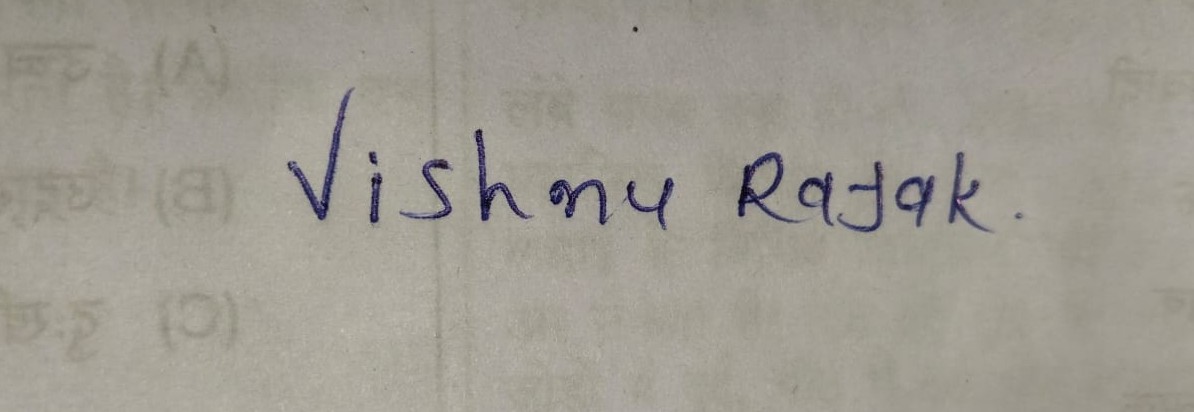 Vishnu Rajak.